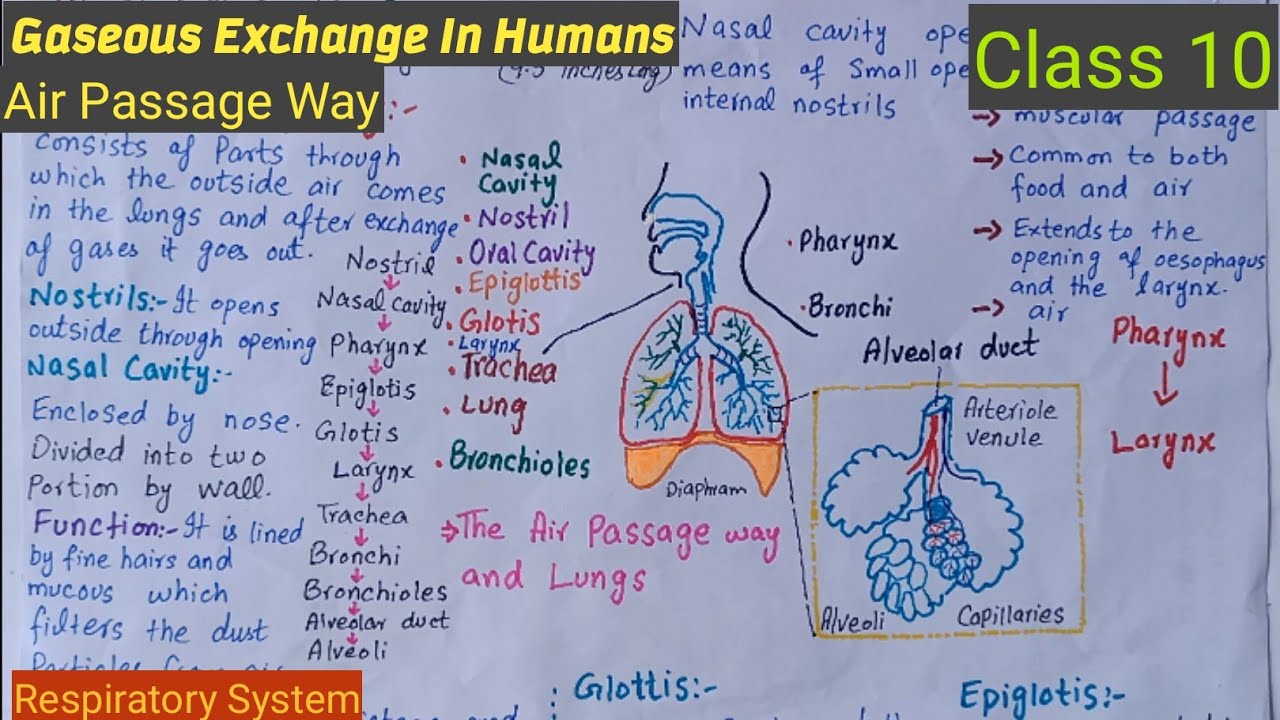 Gaseous Exchange In Humans
Air Passage Way
:-
consists of Parts through
which the outside air comes
in the lungs and after exchange
of gases it goes out.
Nostrils:- It opens
outside through opening
Nasal Cavity:-
Enclosed by nose.
Divided into two
Portion by wall.
Function:- It is lined
by fine hairs and
mucous which
filters the dust
Respiratory System
Nostril
Nasal cavity
Pharynx
Epiglotis
Glotis
Larynx
Trachea
Bronchi
Bronchioles
Alveolar duct
Alveoli
• Nasal
Cavity
• Nostril
• Oral Cavity
• Epiglottis
• Glotis
• Larynx
• Trachea
• Lung
• Bronchioles
⇒ The Air Passage way
and Lungs
Nasal cavity
means of Small
internal nostrils
• Pharynx
• Bronchi
Diaphram
Alveolar duct
Arteriole
venule
Alveoli
Capillaries
Class 10
→ muscular passage
→ Common to both
food and air
→ Extends to the
opening of oesophagus
and the larynx.
→ air
Pharynx
↓
Larynx
Glottis:-
Epiglotis:-